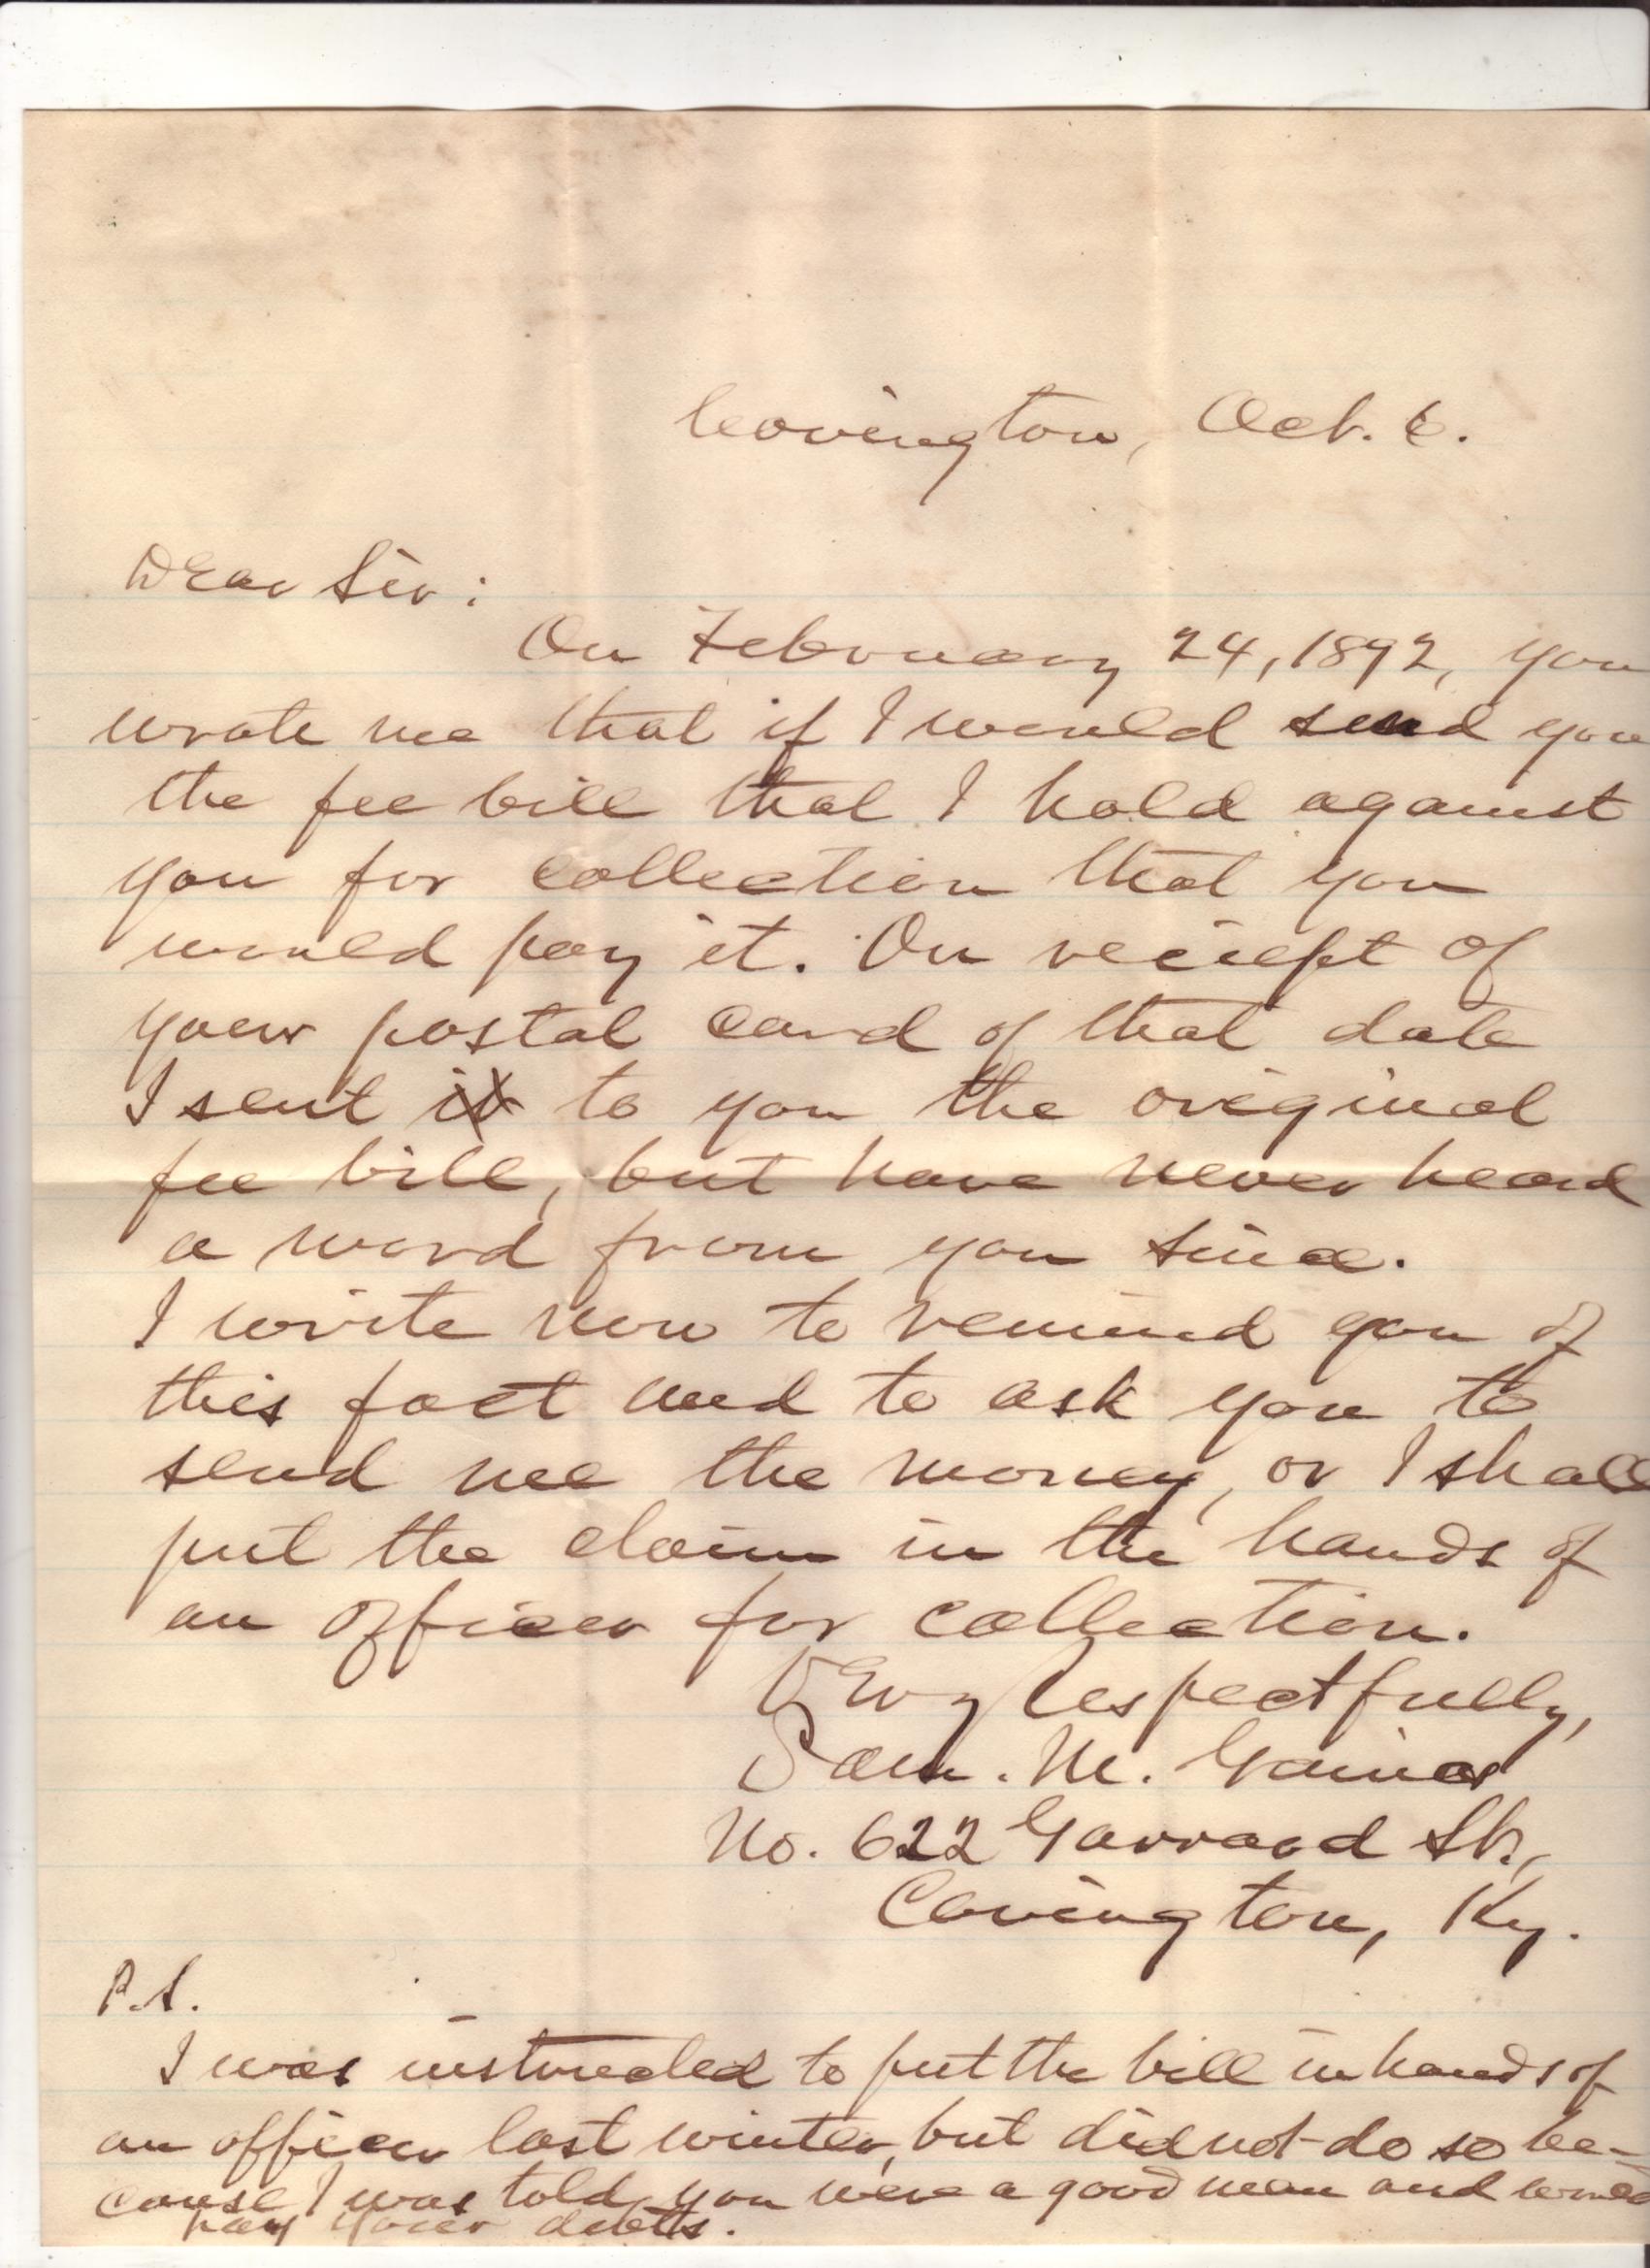 Covington, Oct. 6.
Dear Sir:
On February 24, 1892, you
wrote me that if I would send you
the fee bill that I hold against
you for collection that you
would pay it. On reciept of
your postal card of that date
I sent it to you the original
fee bill, but have never heard
a word from you since.
I write now to remind you of
this fact and to ask you to
send me the money, or I shall
put the claim in the hands of
an officer for collection.
Very Respectfully,
Sam. M. Gaines
No. 622 Garrard St.,
Covington, Ky.
P.S.
I was instructed to put the bill in hands of
an officer last winter, but did not do so be-
cause I was told you were a good man and would
pay your debts.